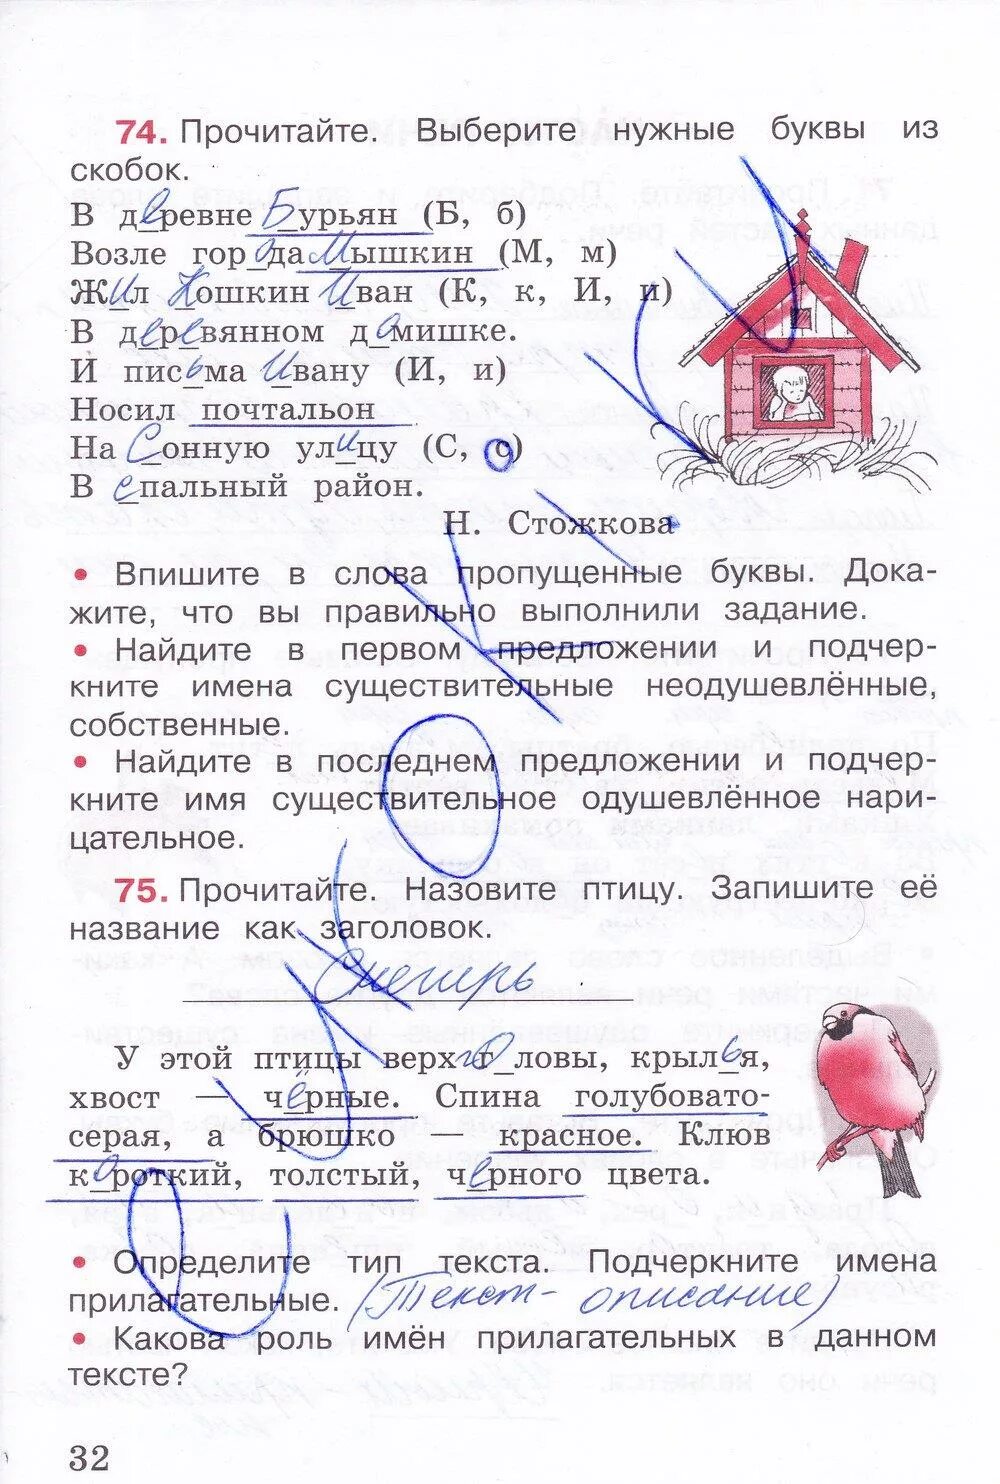 74. Прочитайте. Выберите нужные буквы из
скобок.
В деревне Бурьян (Б, б)
Возле города Мышкин (М, м)
Жил Кошкин Иван (К, к, И, и)
В деревянном домишке.
И письма Ивану (И, и)
Носил почтальон
На Сонную улицу (С, с)
В спальный район.
Н. Стожкова
• Впишите в слова пропущенные буквы. Дока-
жите, что вы правильно выполнили задание.
• Найдите в первом предложении и подчер-
кните имена существительные неодушевлённые,
собственные.
• Найдите в последнем предложении и подчер-
кните имя существительное одушевлённое нари-
цательное.
75. Прочитайте. Назовите птицу. Запишите её
название как заголовок.
Снегирь
У этой птицы верх головы, крылья,
хвост — чёрные. Спина голубовато-
серая, а брюшко — красное. Клюв
короткий, толстый, черного цвета.
• Определите тип текста. Подчеркните имена
прилагательные. (Текст - описание)
• Какова роль имён прилагательных в данном
тексте?
32